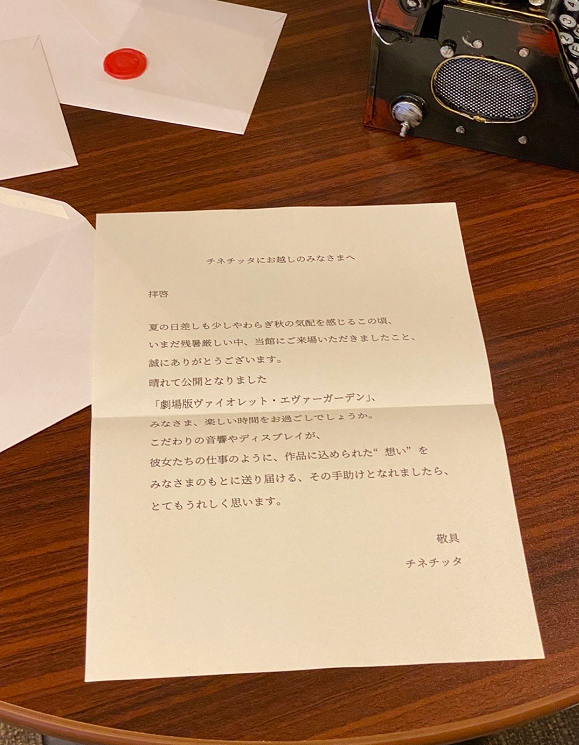 チネチッタにお越しのみなさまへ
拝啓
夏の日差しも少しやわらぎ秋の気配を感じるこの頃、
いまだ残暑厳しい中、当館にご来場いただきましたこと、
誠にありがとうございます。
晴れて公開となりました
「劇場版ヴァイオレット・エヴァーガーデン」、
みなさま、楽しい時間をお過ごしでしょうか。
こだわりの音響やディスプレイが、
彼女たちの仕事のように、作品に込められた“想い”を
みなさまのもとに送り届ける、その手助けとなれましたら、
とてもうれしく思います。
敬具
チネチッタ